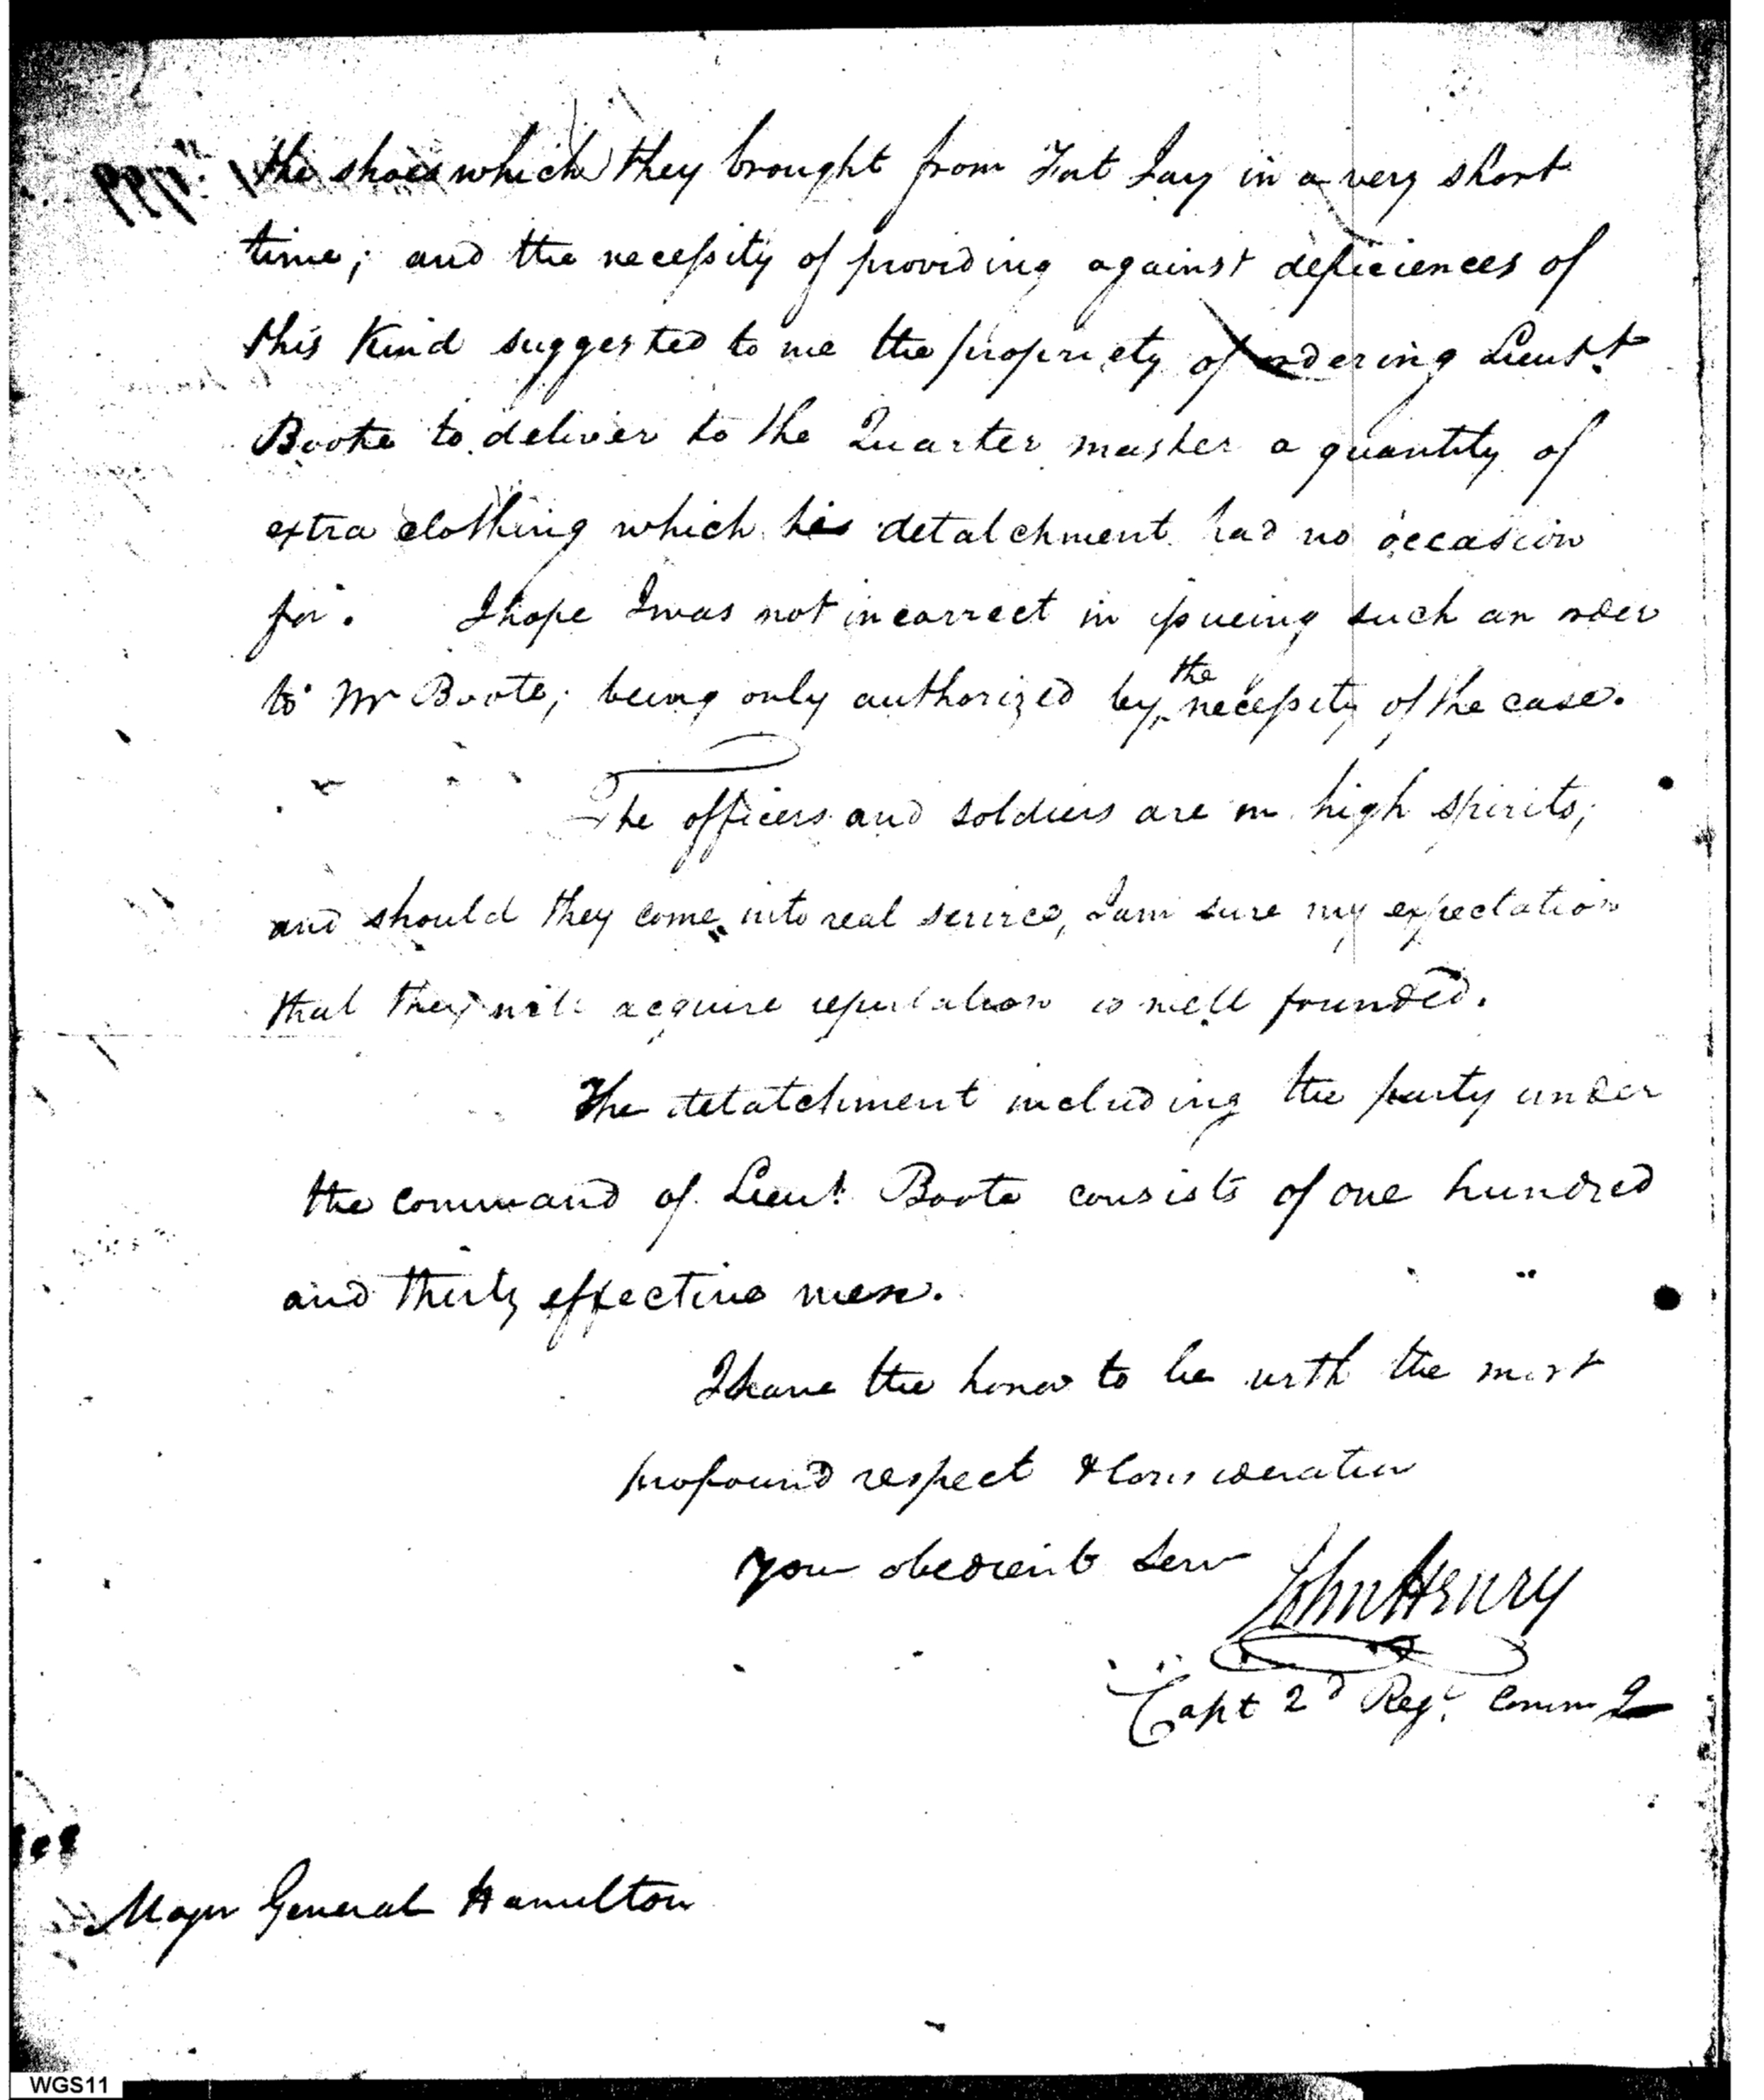 the shoes which they brought from Fort Jay in a very short
time; and the necessity of providing against deficiences of
this Kind suggested to me the propriety of ordering Lieutt.
Boote to deliver to the Quarter master a quantity of
extra clothing which his detatchment had no occasion
for. I hope I was not incorrect in issueing such an order
to Mr Boote; being only authorized by the necessity of the case.
The officers and soldiers are in high spirits;
and should they come into real service, I am sure my expectation
that they will acquire reputation is well founded.
The detatchment including the party under
the command of Lieut. Boote consists of one hundred
and thirty effective men.
I have the honor to be with the most
profound respect & Consideration
Your obedient Serv
John Henry
Capt 2d Regt. Comm
Major General Hamilton
WGS11